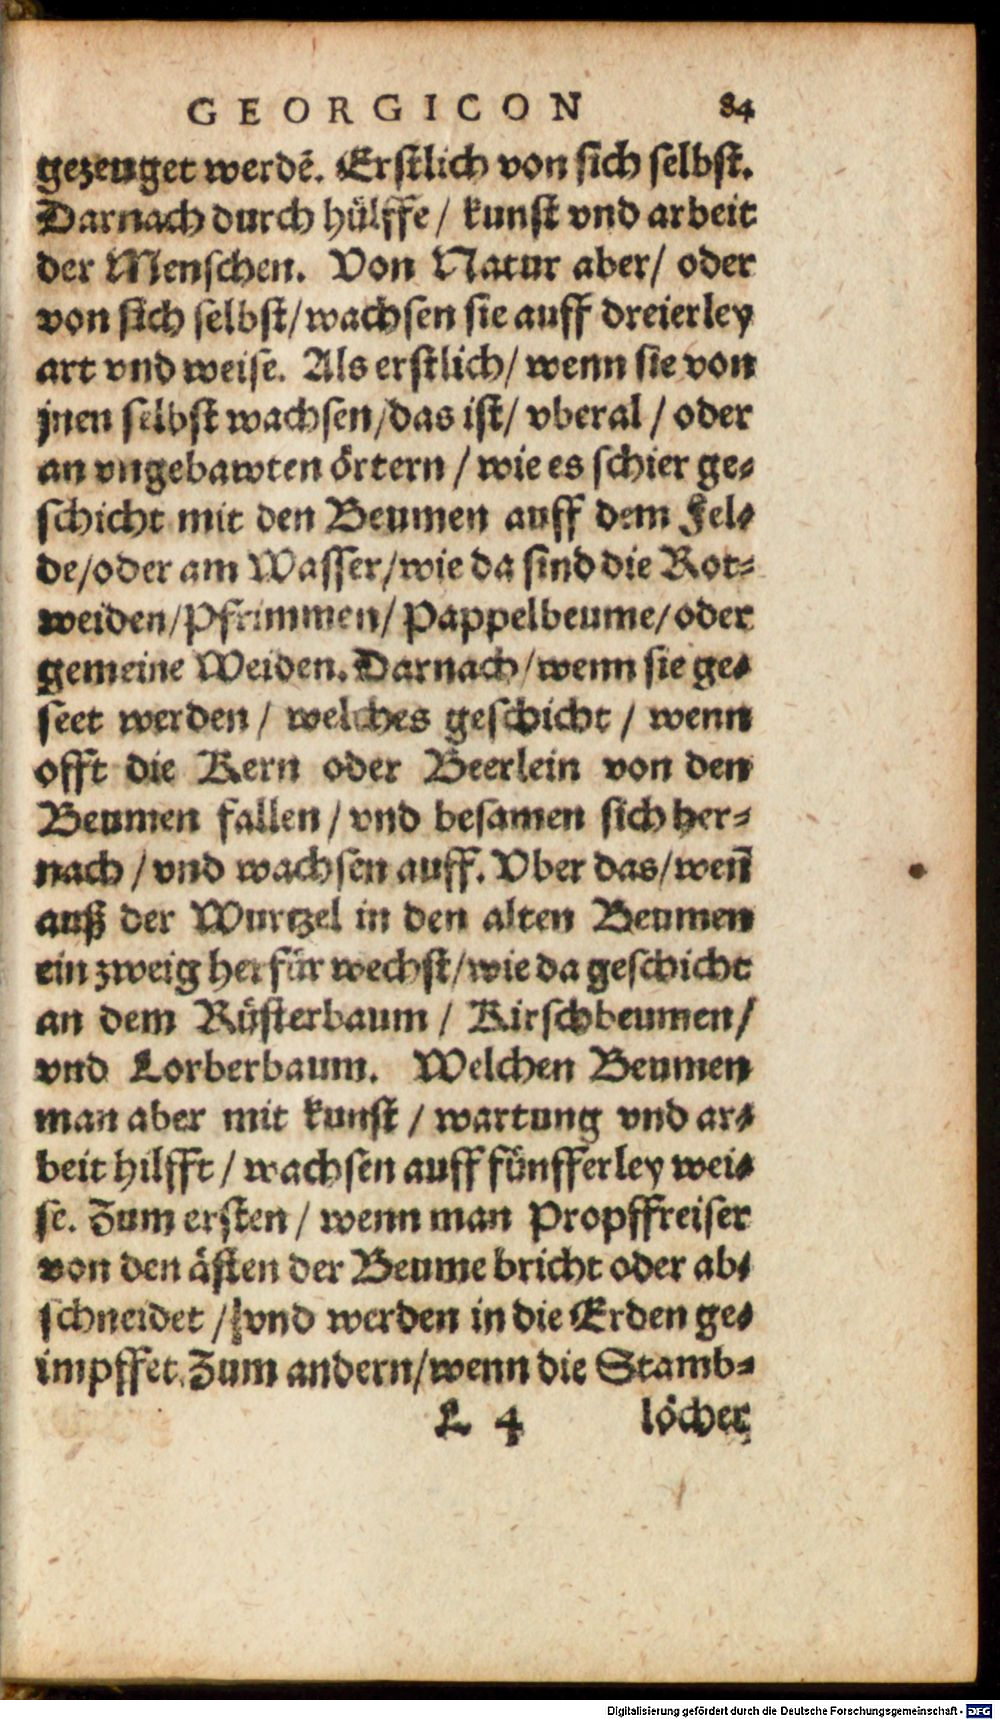 GEORGICON 84
gezeuget werdẽ. Erstlich von sich selbst.
Darnach durch hülffe / kunst vnd arbeit
der Menschen. Von Natur aber/ oder
von sich selbst/wachsen sie auff dreierley
art vnd weise. Als erstlich/ wenn sie von
jnen selbst wachsen/das ist/ vberal / oder
an vngebawten örtern / wie es schier ge-
schicht mit den Beumen auff dem Fel-
de/oder am Wasser/wie da sind die Rot-
weiden/Pfrimmen/ Pappelbeume/oder
gemeine Weiden. Darnach/wenn sie ge-
seet werden / welches geschicht / wenn
offt die Kern oder Beerlein von den
Beumen fallen / vnd besamen sich her-
nach / vnd wachsen auff. Vber das/weñ
auß der Wurtzel in den alten Beumen
ein zweig herfür wechst/wie da geschicht
an dem Rüsterbaum / Kirschbeumen/
vnd Lorberbaum. Welchen Beumen
man aber mit kunst / wartung vnd ar-
beit hilfft / wachsen auff fünfferley wei-
se. Zum ersten / wenn man Propffreiser
von den ästen der Beume bricht oder ab-
schneidet / vnd werden in die Erden ge-
impffet. Zum andern/wenn die Stamb-
L 4 löcher
Digitalisierung gefördert durch die Deutsche Forschungsgemeinschaft - DFG